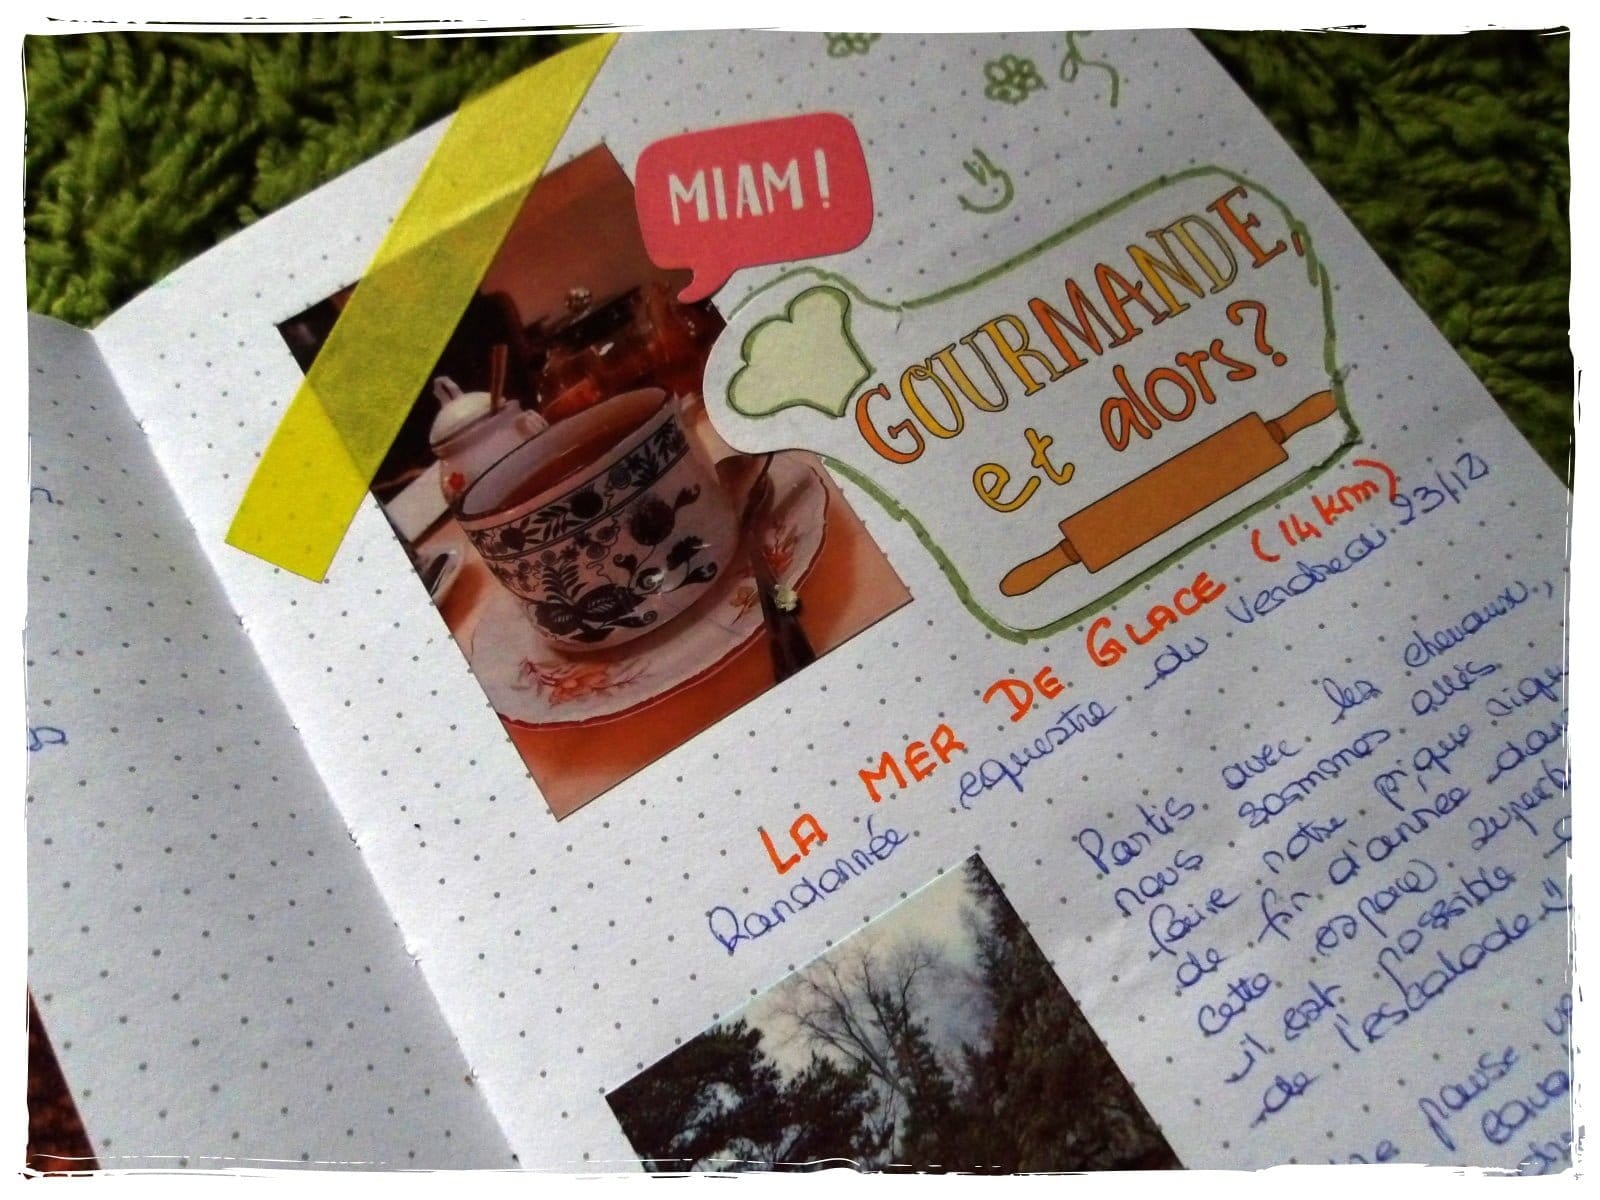 MIAM !
GOURMANDE,
et alors?
LA MER DE GLACE (14 km)
Randonnée équestre du Vendredi 23/12
Partis avec les chevaux,
nous sommes allés
faire notre pique nique
de fin d'année dans
cette espace superbe
il est possible
de l'escalade"
pause